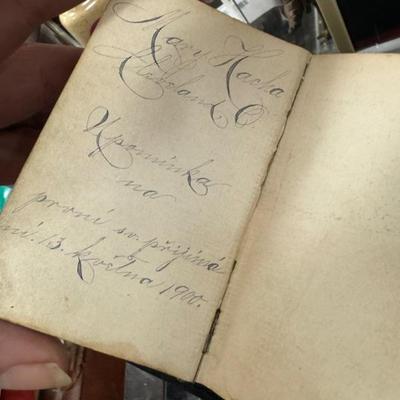 Mary Hacha
Cleveland, O
Upomínka
na
první sv. přijímá
ní. 13. května 1900.